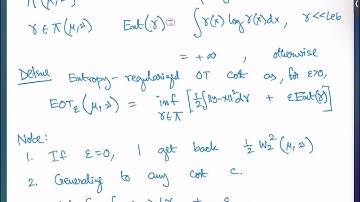 Π(μ,ν)
γ ∈ Π(μ,ν) Ent(γ) = ∫ γ(x) log γ(x) dx, γ << Leb
= +∞, otherwise
Define Entropy-regularized OT cost as, for ε>0,
EOT_ε(μ,ν) = inf_{γ∈Π} [ ½∫||y-x||² dγ + ε Ent(γ) ]
Note:
1. If ε=0, I get back ½ W₂²(μ,ν)
2. Generating to any cost c.